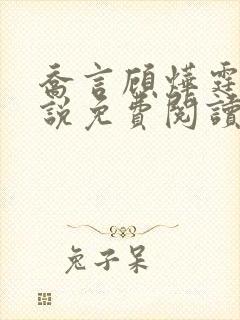 喬言顧燁霆
說免費閱讀
兔子呆